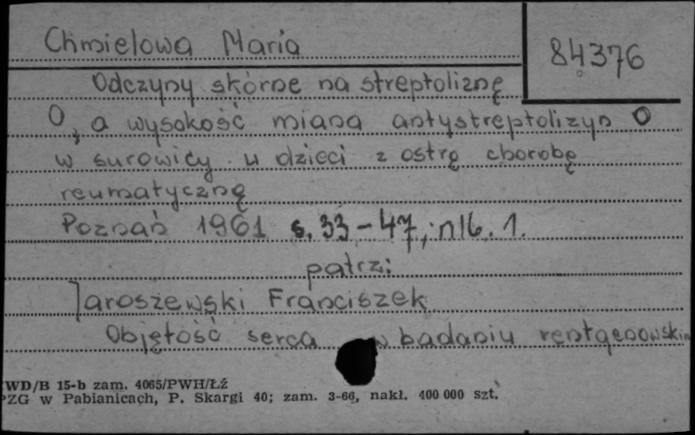 Chmielowa Maria
84376
Odczyny skórne na streptoliznę
O, a wysokość miana antystreptolizyn O
w surowicy u dzieci z ostrą chorobę
reumatyczną
Poznań 1961 s. 33-47, nlb. 1.
patrz:
Jaroszewski Franciszek
Objętość serca w badaniu rentgenowskim
WD/B 15-b zam. 4065/PWH/Łź
PZG w Pabianicach, P. Skargi 40; zam. 3-66, nakł. 400 000 szt.